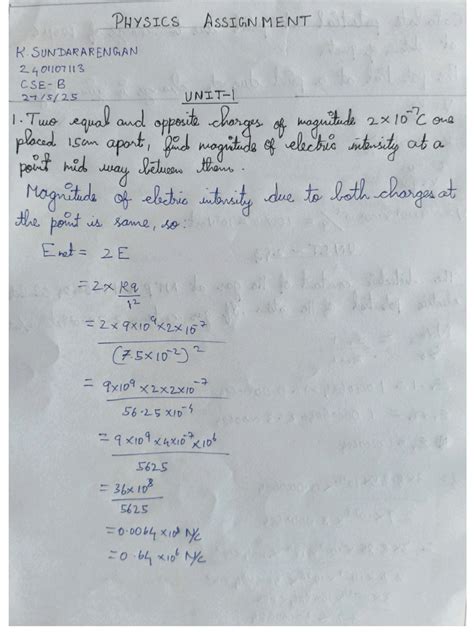 PHYSICS ASSIGNMENT
K SUNDARARENGAN
2401107113
CSE-B
27/5/25
UNIT-1
1. Two equal and opposite charges of magnitude 2×10⁻⁷C are
placed 15cm apart, find magnitude of electric intensity at a
point mid way between them.
Magnitude of electric intensity due to both charges at
the point is same, so:
Enet = 2E
= 2× Kq / r²
= 2×9×10⁹×2×10⁻⁷ / (7.5×10⁻²)²
= 9×10⁹×2×2×10⁻⁷ / 56.25×10⁻⁴
= 9×10⁹×4×10⁻⁷×10⁶ / 5625
= 36×10⁸ / 5625
=0.0064×10⁸ N/C
=0.64×10⁶ N/C